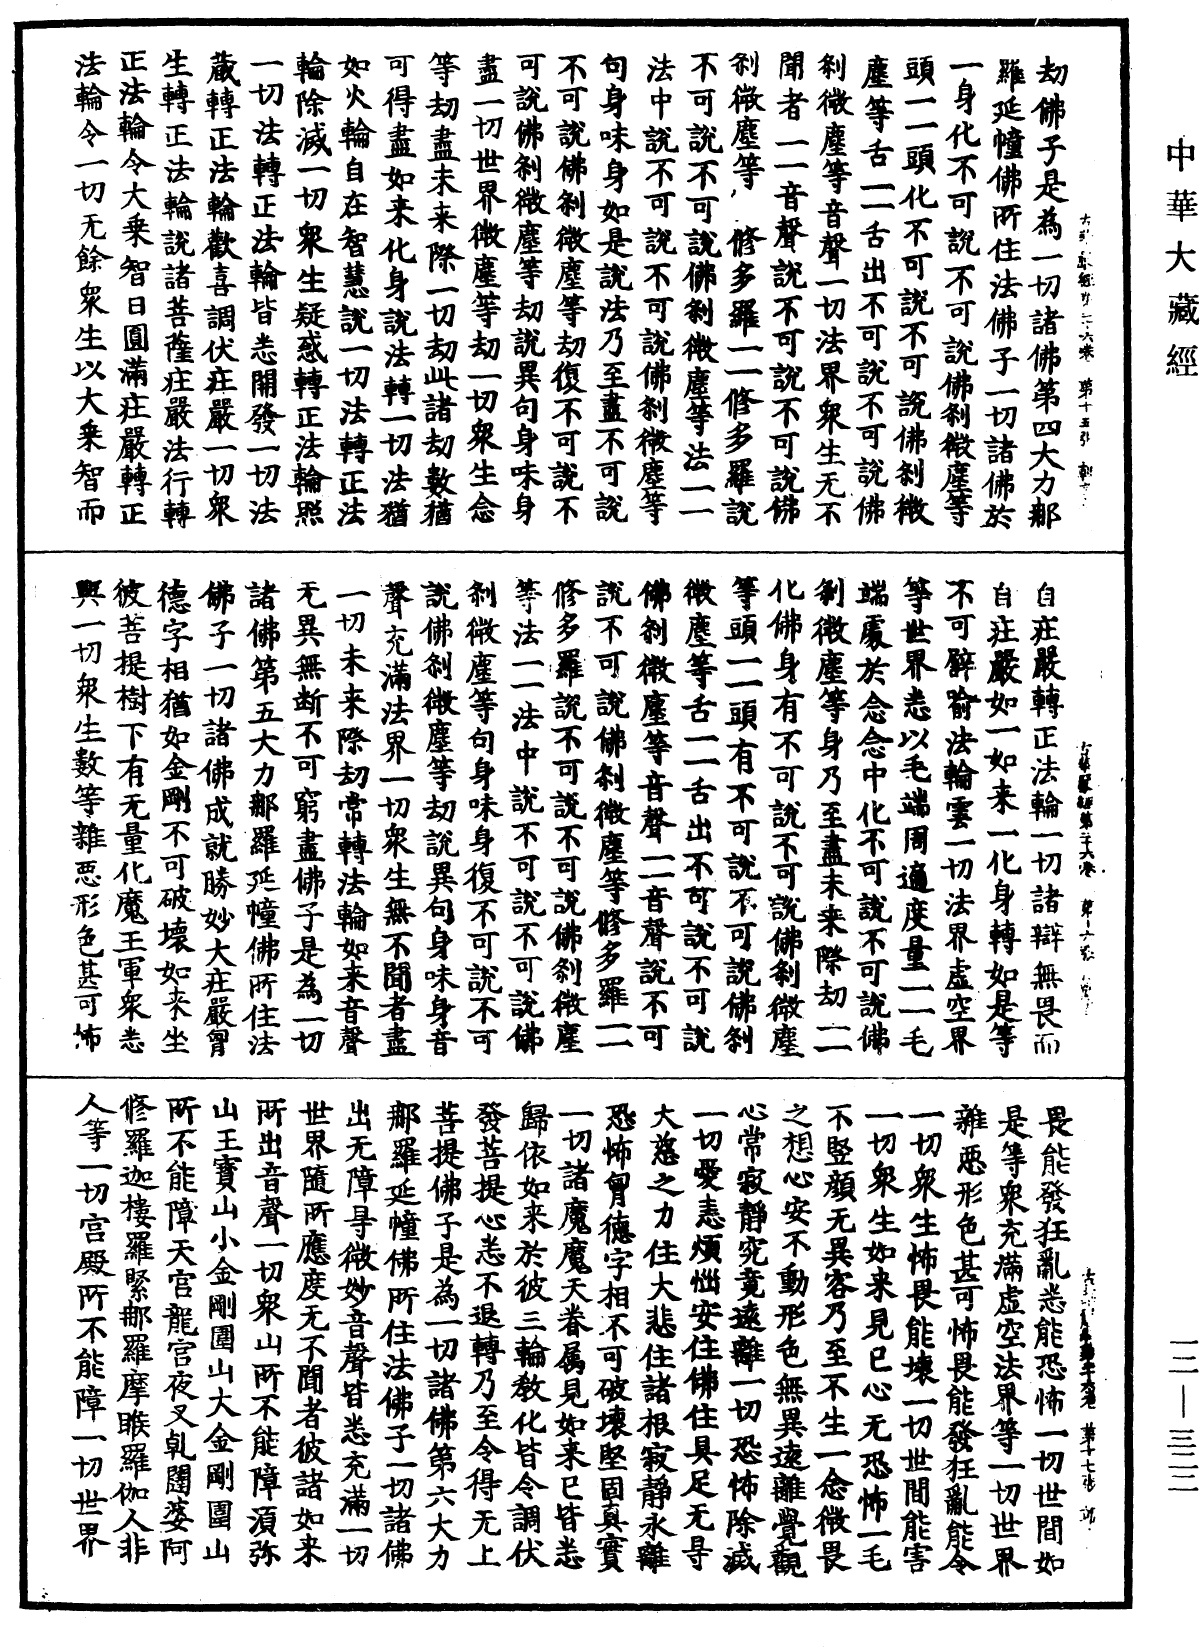 中華大藏經
劫佛子是為一切諸佛第四大力那
羅延幢佛所住法佛子一切諸佛於
一身化不可說不可說佛剎微塵等
頭一一頭化不可說不可說佛剎微
塵等舌一一舌出不可說不可說佛
剎微塵等音聲一切法界衆生无不
聞者一一音聲說不可說不可說佛
剎微塵等修多羅一一修多羅說
不可說不可說佛剎微塵等法一一
法中說不可說不可說佛剎微塵等
句身味身如是說法乃至盡不可說
不可說佛剎微塵等劫復不可說不
可說佛剎微塵等劫說異句身味身
盡一切世界微塵等劫一切衆生念
等劫盡未来際一切劫此諸劫數猶
可得盡如来化身說法轉一切法猶
如火輪自在智慧說一切法轉正法
輪除滅一切衆生疑惑轉正法輪照
一切法轉正法輪皆悉開發一切法
藏轉正法輪歡喜調伏莊嚴一切衆
生轉正法輪說諸菩薩莊嚴法行轉
正法輪令大乘智日圓滿莊嚴轉正
法輪令一切无餘衆生以大乘智而
自莊嚴轉正法輪一切諸辯無畏而
自莊嚴如一如来一化身轉如是等
不可辟喻法輪雲一切法界虛空界
等世界悉以毛端周遍度量一一毛
端處於念念中化不可說不可說佛
剎微塵等身乃至盡未来際劫一一
化佛身有不可說不可說佛剎微塵
等頭一一頭有不可說不可說佛剎
微塵等舌一一舌出不可說不可說
佛剎微塵等音聲一一音聲說不可
說不可說佛剎微塵等修多羅一一
修多羅說不可說不可說佛剎微塵
等法一一法中說不可說不可說佛
剎微塵等句身味身復不可說不可
說佛剎微塵等劫說異句身味身音
聲充滿法界一切衆生無不聞者盡
一切未来際劫常轉法輪如来音聲
无異無断不可窮盡佛子是為一切
諸佛第五大力那羅延幢佛所住法
佛子一切諸佛成就勝妙大莊嚴胷
德字相猶如金剛不可破壞如来坐
彼菩提樹下有无量化魔王軍衆悉
與一切衆生數等雜惡形色甚可怖
畏能發狂亂悉能恐怖一切世間如
是等衆充滿虛空法界等一切世界
雜惡形色甚可怖畏能發狂亂能令
一切衆生怖畏能壞一切世間能害
一切衆生如来見已心无恐怖一毛
不竪顏无異容乃至不生一念微畏
之想心安不動形色無異遠離覺觀
心常寂靜究竟遠離一切恐怖除滅
一切愛恚煩惱安住佛住具足无㝵
大慈之力住大悲住諸根寂靜永離
恐怖胷德字相不可破壞堅固真實
一切諸魔魔天眷属見如来已皆悉
歸依如来於彼三輪教化皆令調伏
發菩提心悉不退轉乃至令得无上
菩提佛子是為一切諸佛第六大力
那羅延幢佛所住法佛子一切諸佛
出无障㝵微妙音聲皆悉充滿一切
世界隨所應度无不聞者彼諸如来
所出音聲一切衆山所不能障湏弥
山王寶山小金剛圍山大金剛圍山
所不能障天宮龍宮夜叉乹闥婆阿
修羅迦樓羅緊那羅摩睺羅伽人非
人等一切宮殿所不能障一切世界
一二—三二二